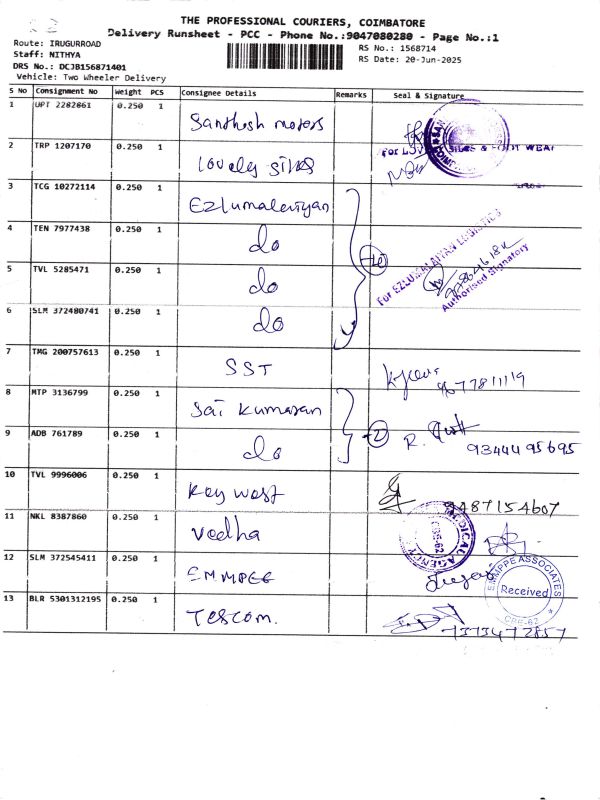 THE PROFESSIONAL COURIERS, COIMBATORE
Delivery Runsheet - PCC - Phone No.:9047080280 - Page No.:1
Route: IRUGURROAD
Staff: NITHYA
DRS No.: DCJB156871401
Vehicle: Two Wheeler Delivery
RS No.: 1568714
RS Date: 20-Jun-2025
S No Consignment No Weight PCS Consignee Details Remarks Seal & Signature
1 UPT 2282861 0.250 1 Santhosh motors
2 TRP 1207170 0.250 1 Lovely silks
SILKS & FOOT WEAR
3 TCG 10272114 0.250 1 Ezlumalaiyan
4 TEN 7977438 0.250 1 do
5 TVL 5285471 0.250 1 do
For EZLUMALAIYAN LOGISTICS
Authorised Signatory
6 SLM 372480741 0.250 1 do
7 TMG 200757613 0.250 1 SST
9677811119
8 MTP 3136799 0.250 1 Sai Kumaran
9 ADB 761789 0.250 1 do
9344495695
10 TVL 9996006 0.250 1 Key west
9487154607
11 NKL 8387860 0.250 1 Vedha
MEDICAL AGENCY
CBE-62
12 SLM 372545411 0.250 1 EMMPEE
EMMPPE ASSOCIATES
Received
CBE-62
13 BLR 5301312195 0.250 1 Tescom.
7373472857